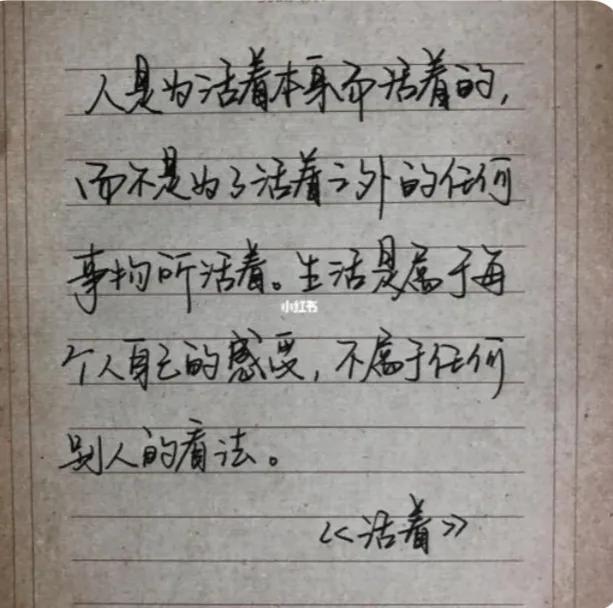 人是为活着本身而活着的，
而不是为了活着之外的任何
事物所活着。生活是属于每
小红书
个人自己的感受，不属于任何
别人的看法。
《活着》